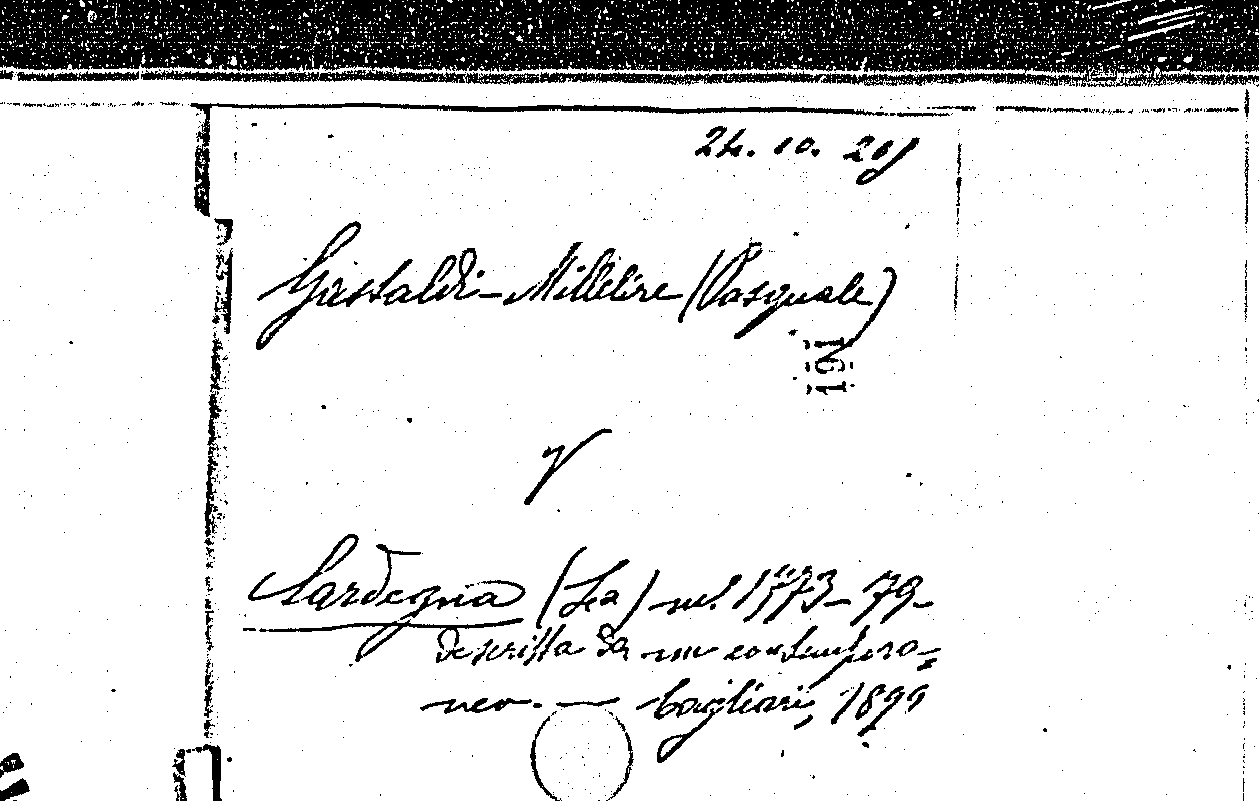 24. 10. 205
Gastaldi-Millelire (Pasquale)
191
Sardegna (La) nel 1773-79-
descritta da un contempora=
neo. — Cagliari, 1899